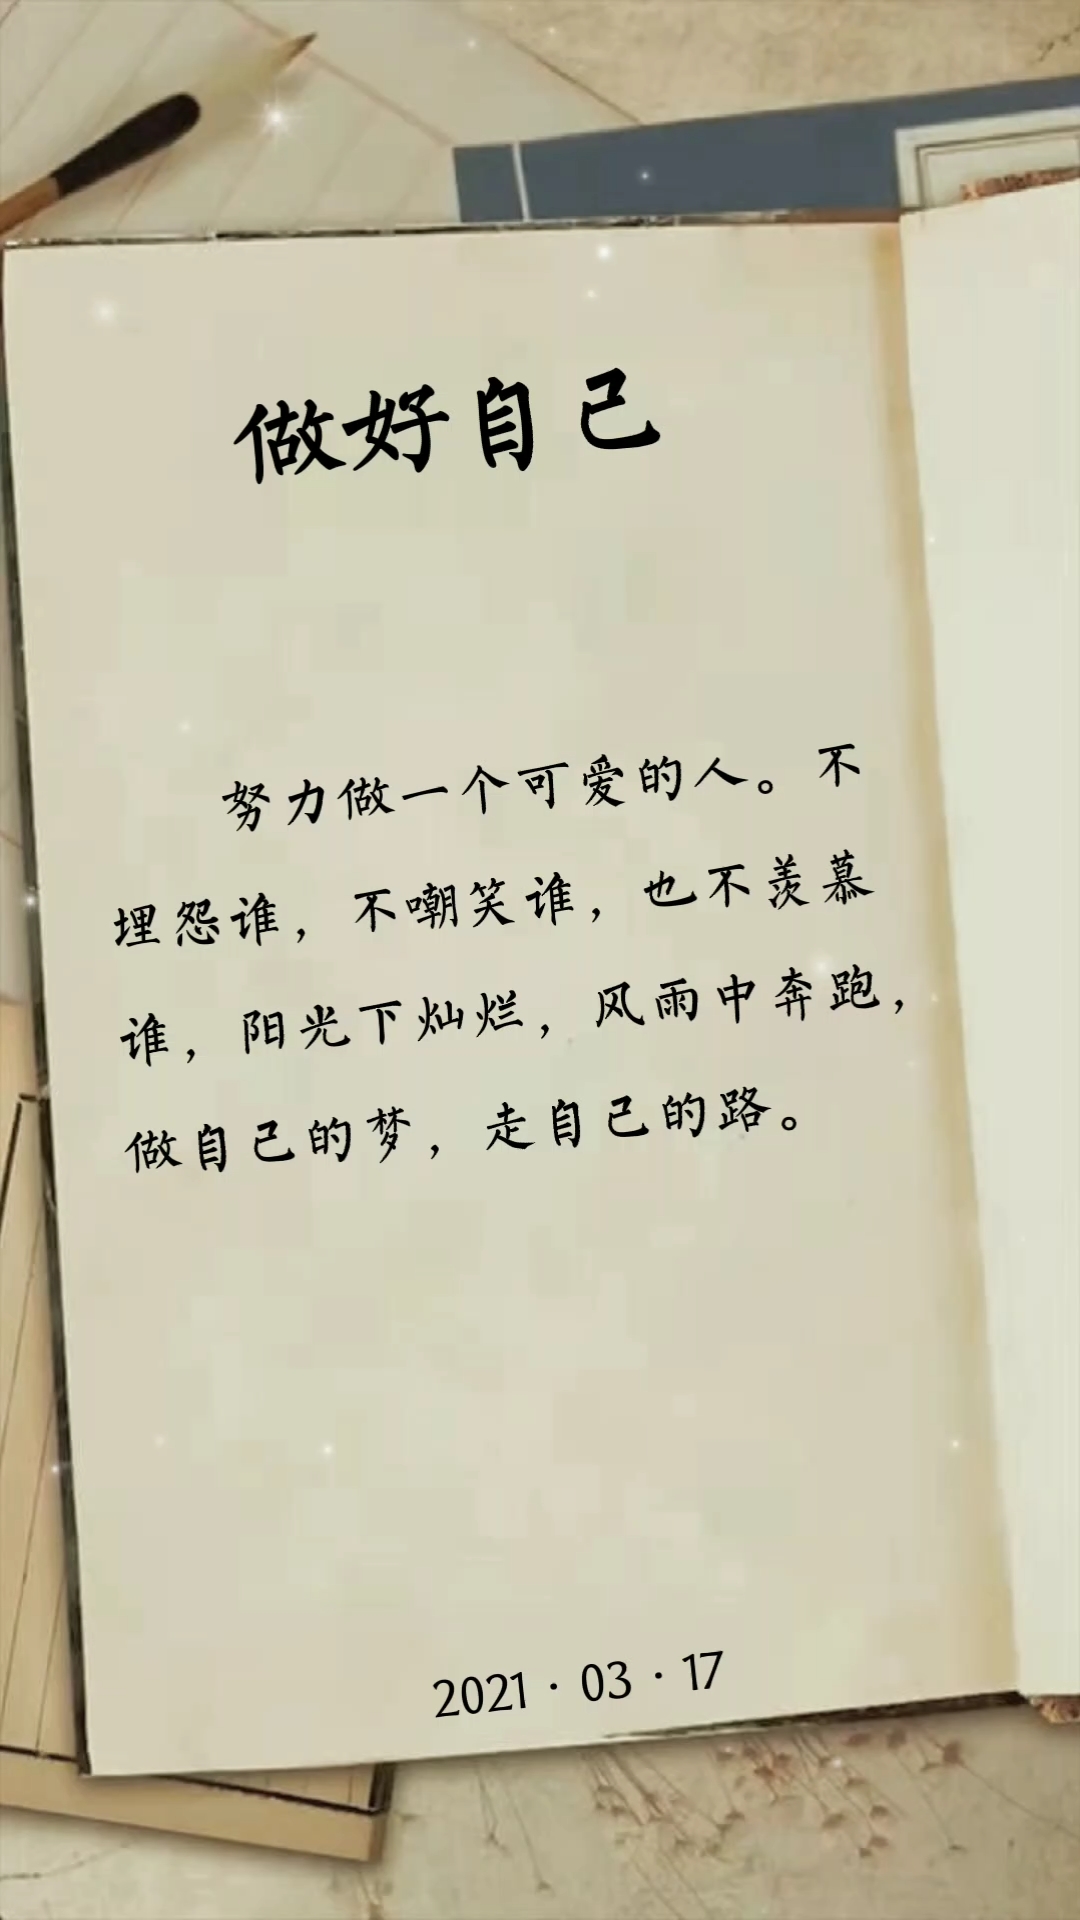 做好自己
努力做一个可爱的人。不
埋怨谁，不嘲笑谁，也不羡慕
谁，阳光下灿烂，风雨中奔跑，
做自己的梦，走自己的路。
2021·03·17